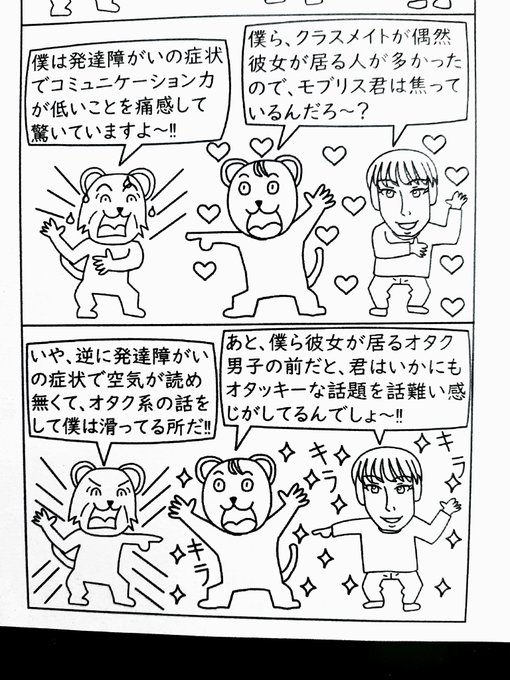 僕ら、クラスメイトが偶然
彼女が居る人が多かった
ので、モブリス君は焦って
いるんだろ〜？
僕は発達障がいの症状
でコミュニケーション力
が低いことを痛感して
驚いていますよ〜!!
あと、僕ら彼女が居るオタク
男子の前だと、君はいかにも
オタッキーな話題を話難い感
じがしてるんでしょ〜!!
いや、逆に発達障がい
の症状で空気が読め
無くて、オタク系の話を
して僕は滑ってる所だ!!
キラ
キラ
キラ